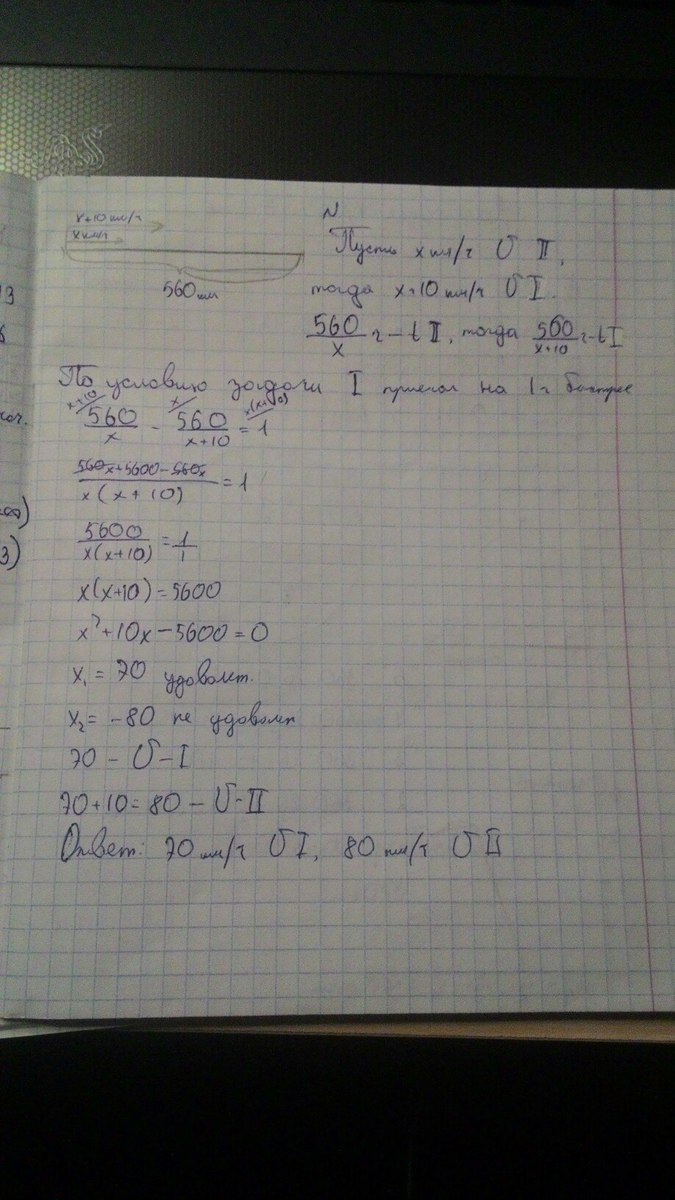 x+10 км/ч
x км/ч
560 км
N
Пусть x км/ч U II,
тогда x+10 км/ч U I.
560/x ч - t II, тогда 560/(x+10) ч - t I
По условию задачи I приехал на 1 ч быстрее
x+10/ x/ x(x+10)/
560/x - 560/(x+10) = 1
(560x+5600-560x)/(x(x+10)) = 1
5600/(x(x+10)) = 1/1
x(x+10) = 5600
x²+10x-5600=0
x₁ = 70 удовлет.
x₂ = -80 не удовлет
70 - U - I
70+10=80 - U - II
Ответ: 70 км/ч U I, 80 км/ч U II
13
3)